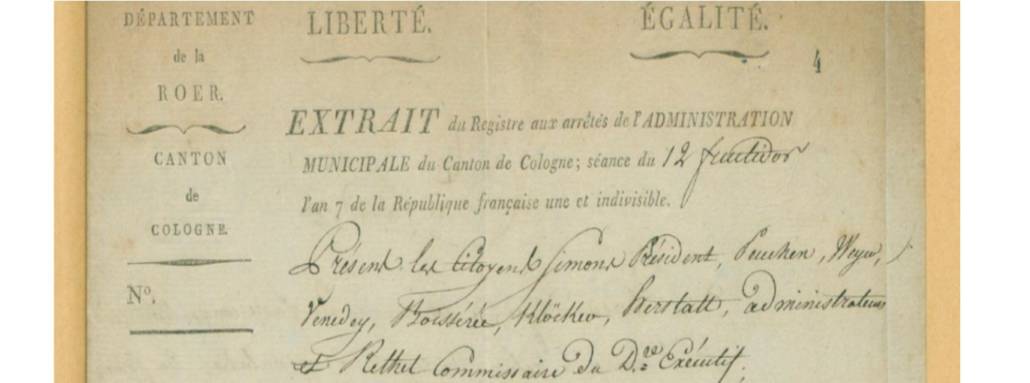 DÉPARTEMENT
de la
ROER.
CANTON
de
COLOGNE.
Nº.
LIBERTÉ. ÉGALITÉ.
4
EXTRAIT du Registre aux arrêtés de l'ADMINISTRATION
MUNICIPALE du Canton de Cologne; séance du 12 fructidor
l'an 7 de la République française une et indivisible.
Présent les Citoyens Simons Président, Peuchen, Weyer,
Venedey, Boisserée, Klöcker, Herstatt, administrateurs
et Rethel Commissaire du D.re Exécutif.